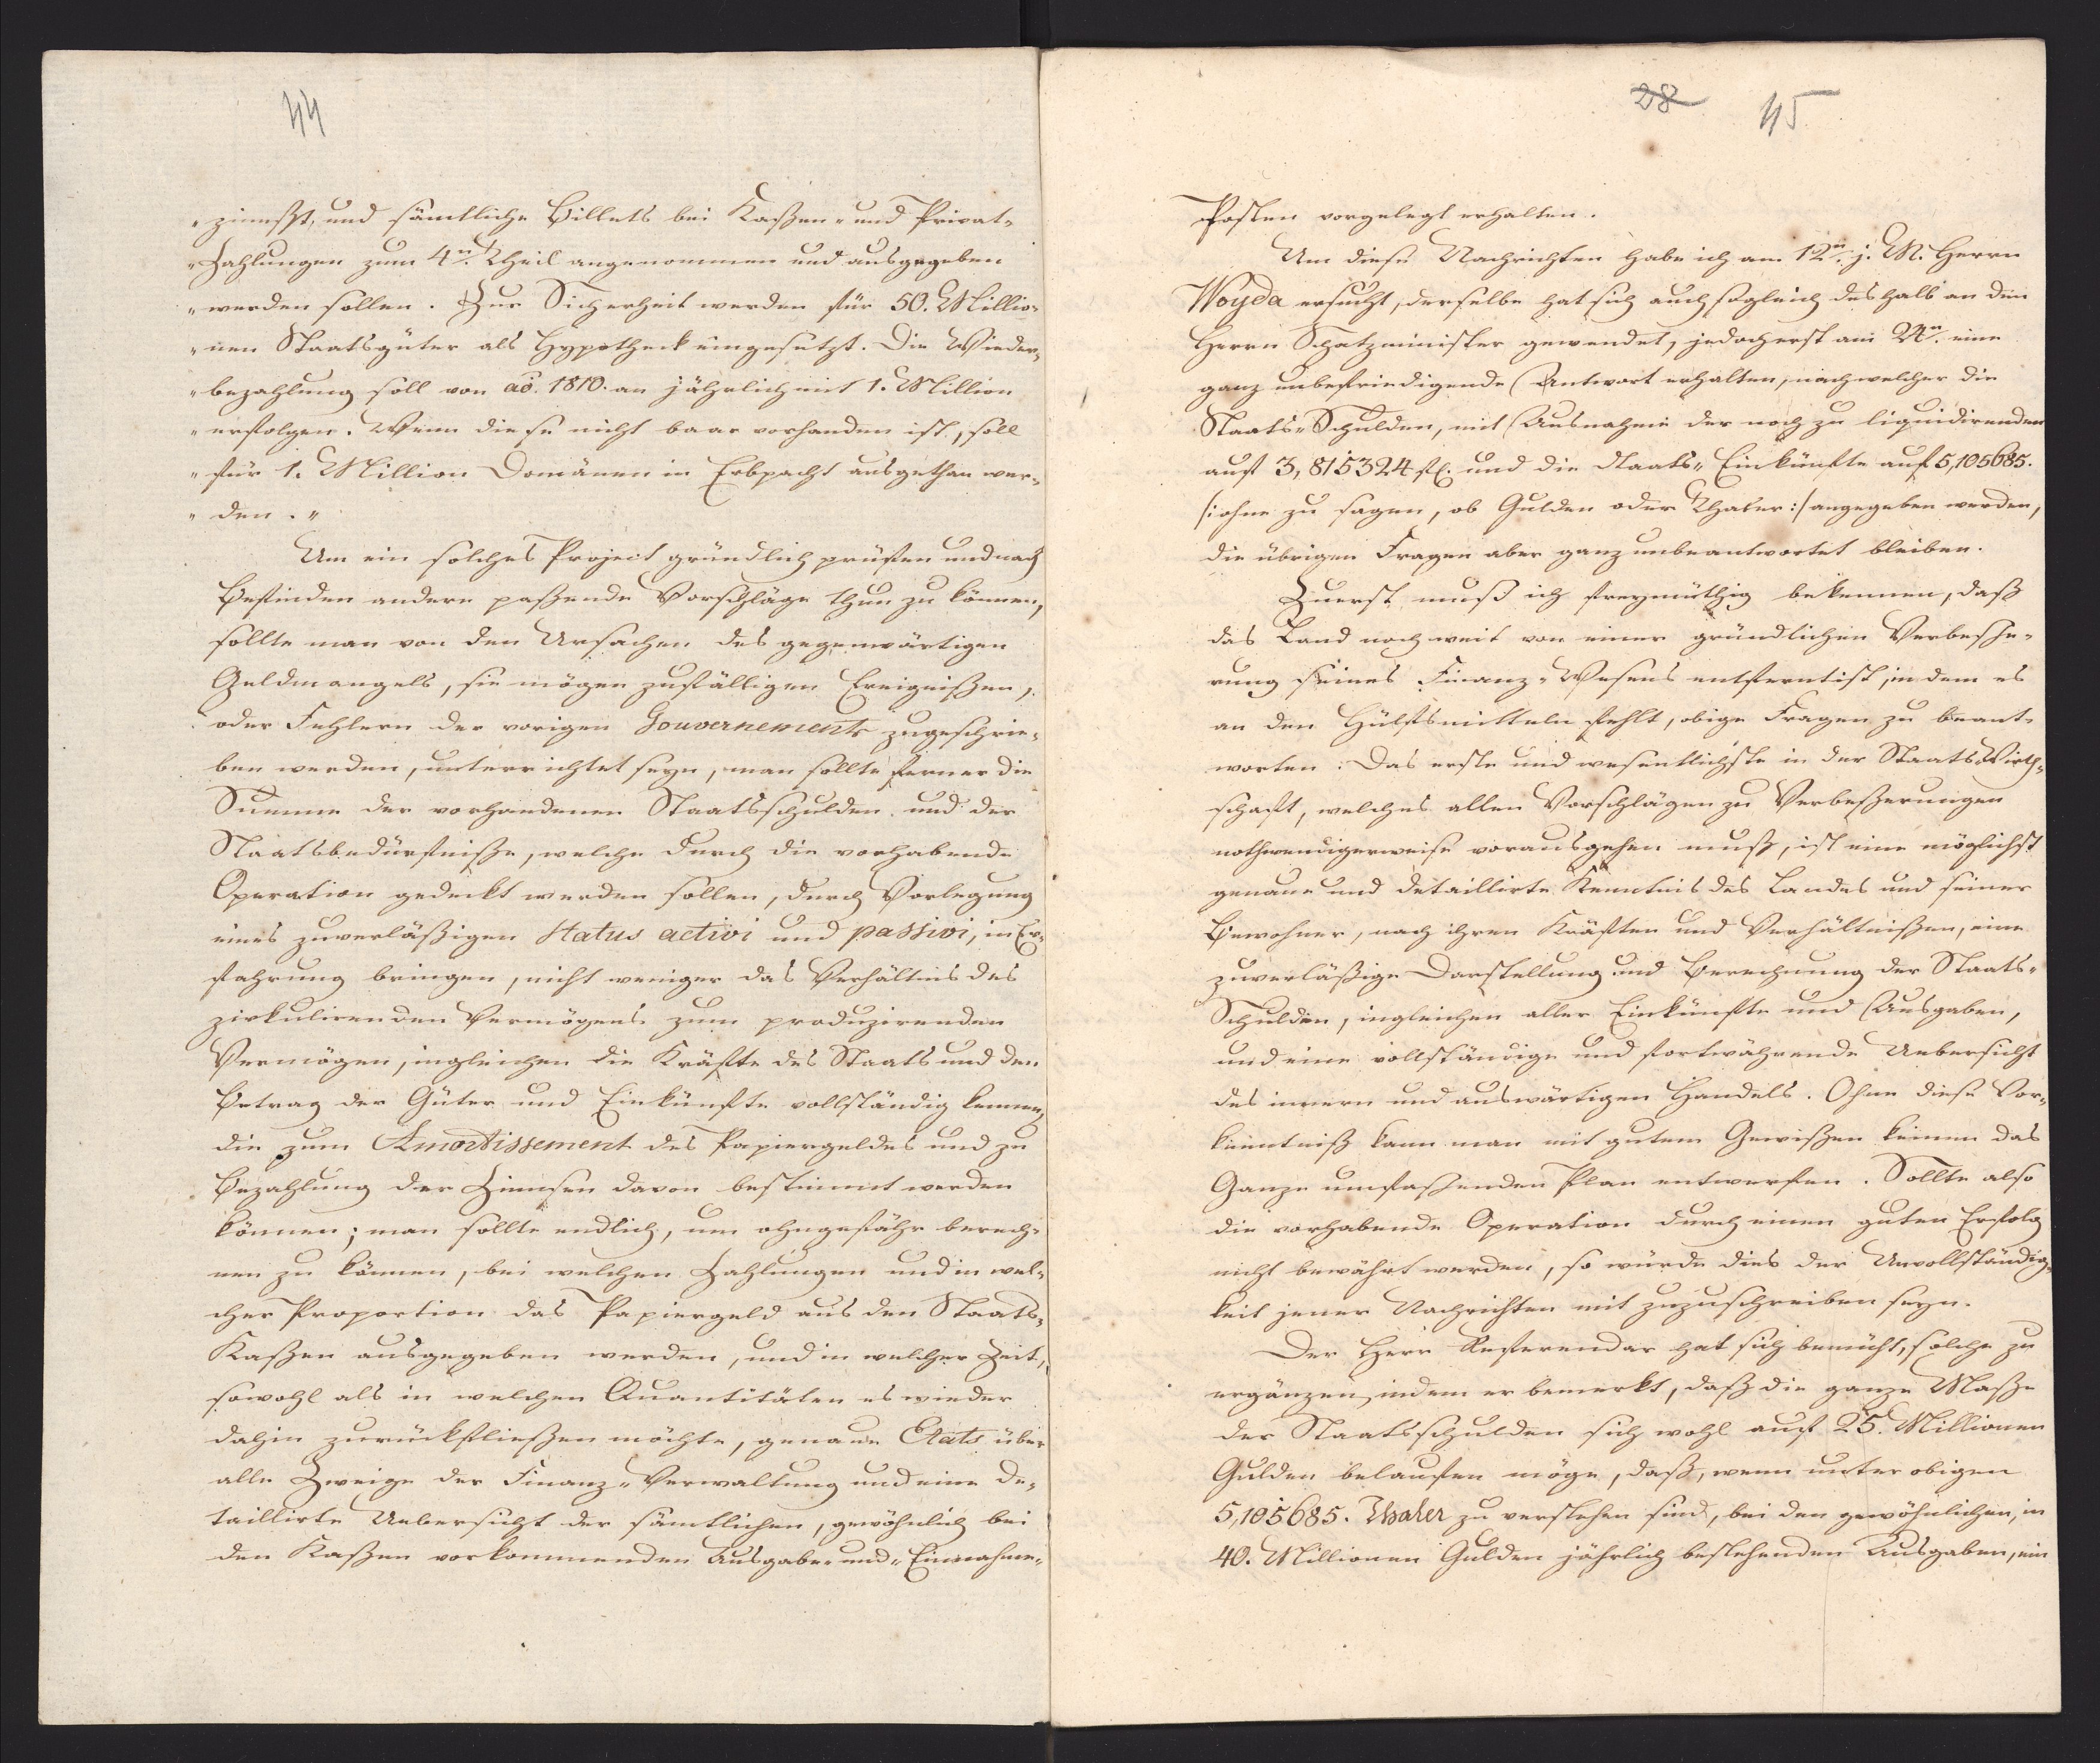 44
„zinnßt, und sämtliche Billets bei Kaßen- und Privat-
„Zahlungen zum 4n. Theil angenommen und ausgegeben
„werden sollen. Zur Sicherheit werden für 50. Millio-
„nen Staatsgüter als Hypotheck eingesetzt. Die Wieder-
„bezahlung soll von ao. 1810. an jährlich mit 1. Million
„erfolgen. Wenn diese nicht baar vorhanden ist, soll
„für 1. Million Domänen in Erbpacht ausgethan wer-
„den.„
Um ein solches Project gründlich prüfen und nach
Befinden andere paßende Vorschläge thun zu können,
sollte man von den Ursachen des gegenwärtigen
Geldmangels, sie mögen zufälligen Ereignißen,
oder Fehlern der vorigen Gouvernements zugeschrie-
ben werden, unterrichtet seyn, man sollte ferner die
Summe der vorhandenen Staatsschulden und der
Staatsbedürfniße, welche durch die vorhabende
Operation gedeckt werden sollen, durch Vorlegung
eines zuverläßigen Status activi und passivi, in Er-
fahrung bringen, nicht weniger das Verhältnis des
zirkulirenden Vermögens zum produzirenden
Vermögen, ingleichen die Kräfte des Staats und den
Betrag der Güter und Einkünfte vollständig kennen,
die zum Amortissement des Papiergeldes und zu
Bezahlung der Zinnsen davon bestimmt werden
können; man sollte endlich, um ohngefähr berech-
nen zu können, bei welchen Zahlungen und in wel-
cher Proportion das Papiergeld aus den Staats-
Kaßen ausgegeben werden, und in welcher Zeit,
sowohl als in welchen Quantitäten es wieder
dahin zurückfließen möchte, genaue Etats über
alle Zweige der Finanz-Verwaltung und eine de-
taillirte Uebersicht der sämtlichen, gewöhnlich bei
den Kaßen vorkommenden Ausgabe- und Einnahme-
28 45
Posten vorgelegt erhalten.
Um diese Nachrichten habe ich am 12n. j. M. Herrn
Woyda ersucht, derselbe hat sich auch sogleich deshalb an den
Herrn Schatzminister gewendet, jedoch erst am 24n. eine
ganz unbefriedigende Antwort erhalten, nach welcher die
Staats-Schulden, mit Ausnahme der noch zu liquidirenden
auf 3,815324 fl. und die Staats-Einkünfte auf 5,105685.
/: ohne zu sagen, ob Gulden oder Thaler :/ angegeben werden,
die übrigen Fragen aber ganz unbeantwortet bleiben.
Zuerst muß ich freymüthig bekennen, daß
das Land noch weit von einer gründlichen Verbeße-
rung seines Finanz-Wesens entfernt ist, indem es
an den Hülfsmitteln fehlt, obige Fragen zu beant-
worten: Das erste und wesentlichste in der Staats Wirth-
schaft, welches allen Vorschlägen zu Verbeßerungen
nothwendigerweise vorausgehen muß, ist eine möglichst
genaue und detaillirte Kenntnis des Landes und seiner
Bewohner, nach ihren Kräften und Verhältnißen, eine
zuverläßige Darstellung und Berechnung der Staats-
Schulden, ingleichen aller Einkünfte und Ausgaben,
und eine vollständige und fortwährende Uebersicht
des innern und auswärtigen Handels. Ohne diese Vor-
kenntniß kann man mit gutem Gewißen keinen das
Ganze umfaßenden Plan entwerfen. Sollte also
die vorhabende Operation durch einen guten Erfolg
nicht bewährt werden, so würde dies der Unvollständig-
keit jener Nachrichten mit zuzuschreiben seyn.
Der Herr Referendar hat sich bemüht, solche zu
ergänzen, indem er bemerkt, daß die ganze Maße
der Staatsschulden sich wohl auf 25. Millionen
Gulden belaufen möge, daß, wenn unter obigen
5,105685. Thaler zu verstehen sind, bei den gewöhnlichen, in
40. Millionen Gulden jährlich bestehenden Ausgaben, ein